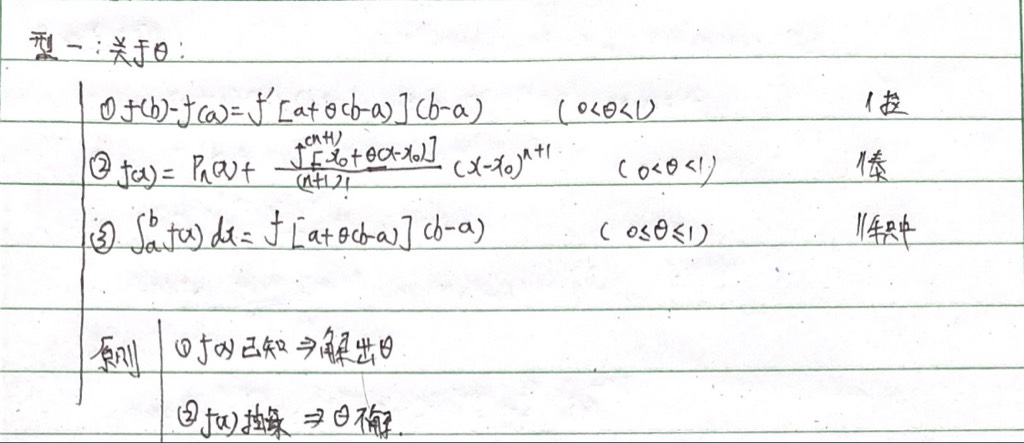 型一:关于θ:
① f(b)-f(a)=f'[a+θ(b-a)](b-a) (0<θ<1)
② f(x)= Pn(x)+ f^(n+1)[x0+θ(x-x0)]/(n+1)! (x-x0)^n+1 (0<θ<1)
③ ∫a^b f(x) dx= f[a+θ(b-a)](b-a) (0≤θ≤1)
原则 ① f(x)已知⇒解出θ
② f(x)抽象 ⇒ θ不解.